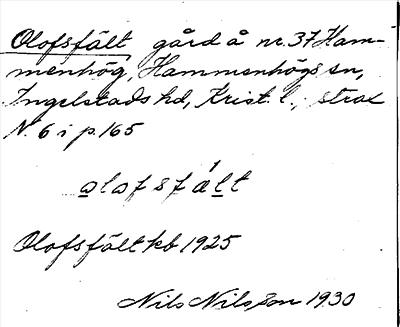 Olofsfält gård å nr. 37 Ham-
menhög, Hammenhögs sn,
Ingelstads hd, Krist. l., strax
N. 6 i p. 165
olofsfált
Olofsfält kb 1925
Nils Nilsson 1930